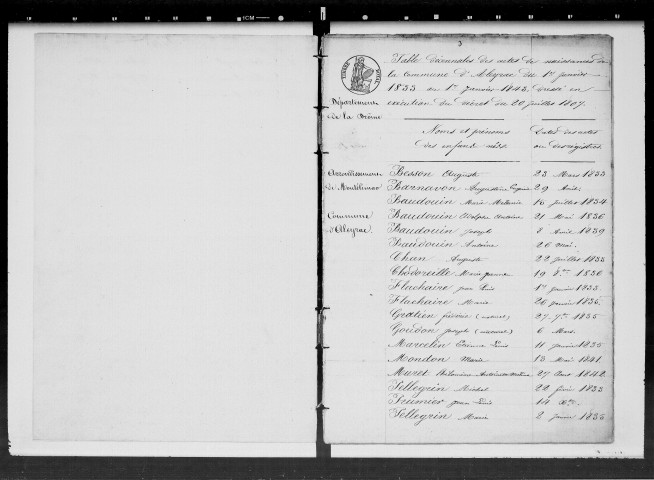 3
Table Décennales des actes de naissances de
la commune d'Aleyrac du 1er janvier
1833 au 1er janvier 1843, dressé en
exécution du décret du 20 juillet 1807.
Département
de la Drôme
Noms et prénoms
des enfants nés
Dates des actes
ou des registres
Arrondissement
de Montélimar
Commune
d'Alleyrac
Besson Auguste 23 Mars 1833
Barnavon Augustine 29 Avril
Baudouin Marie Mélanie 16 juillet 1834
Baudouin Adolphe Antoine 21 Mai 1836
Baudouin Joseph 8 Avril 1839
Baudouin Antoine 26 Mai
Chun Auguste 22 juillet 1833
Chodoreille Marie jeanne 19 8bre 1836
Flachaire jean Louis 1er janvier 1833
Flachaire Marie 26 janvier 1836
Gratien (naturel) 27 7bre 1835
Goudon joseph (naturel) 6 Mars
Marcelin Etienne Louis 11 janvier 1835
Mondon Marie 13 Mai 1841
Muret 27 Aout 1842
Pellegrin Michel 22 février 1833
jean Louis 14 Xbre
Pellegrin Marie 2 janvier 1835